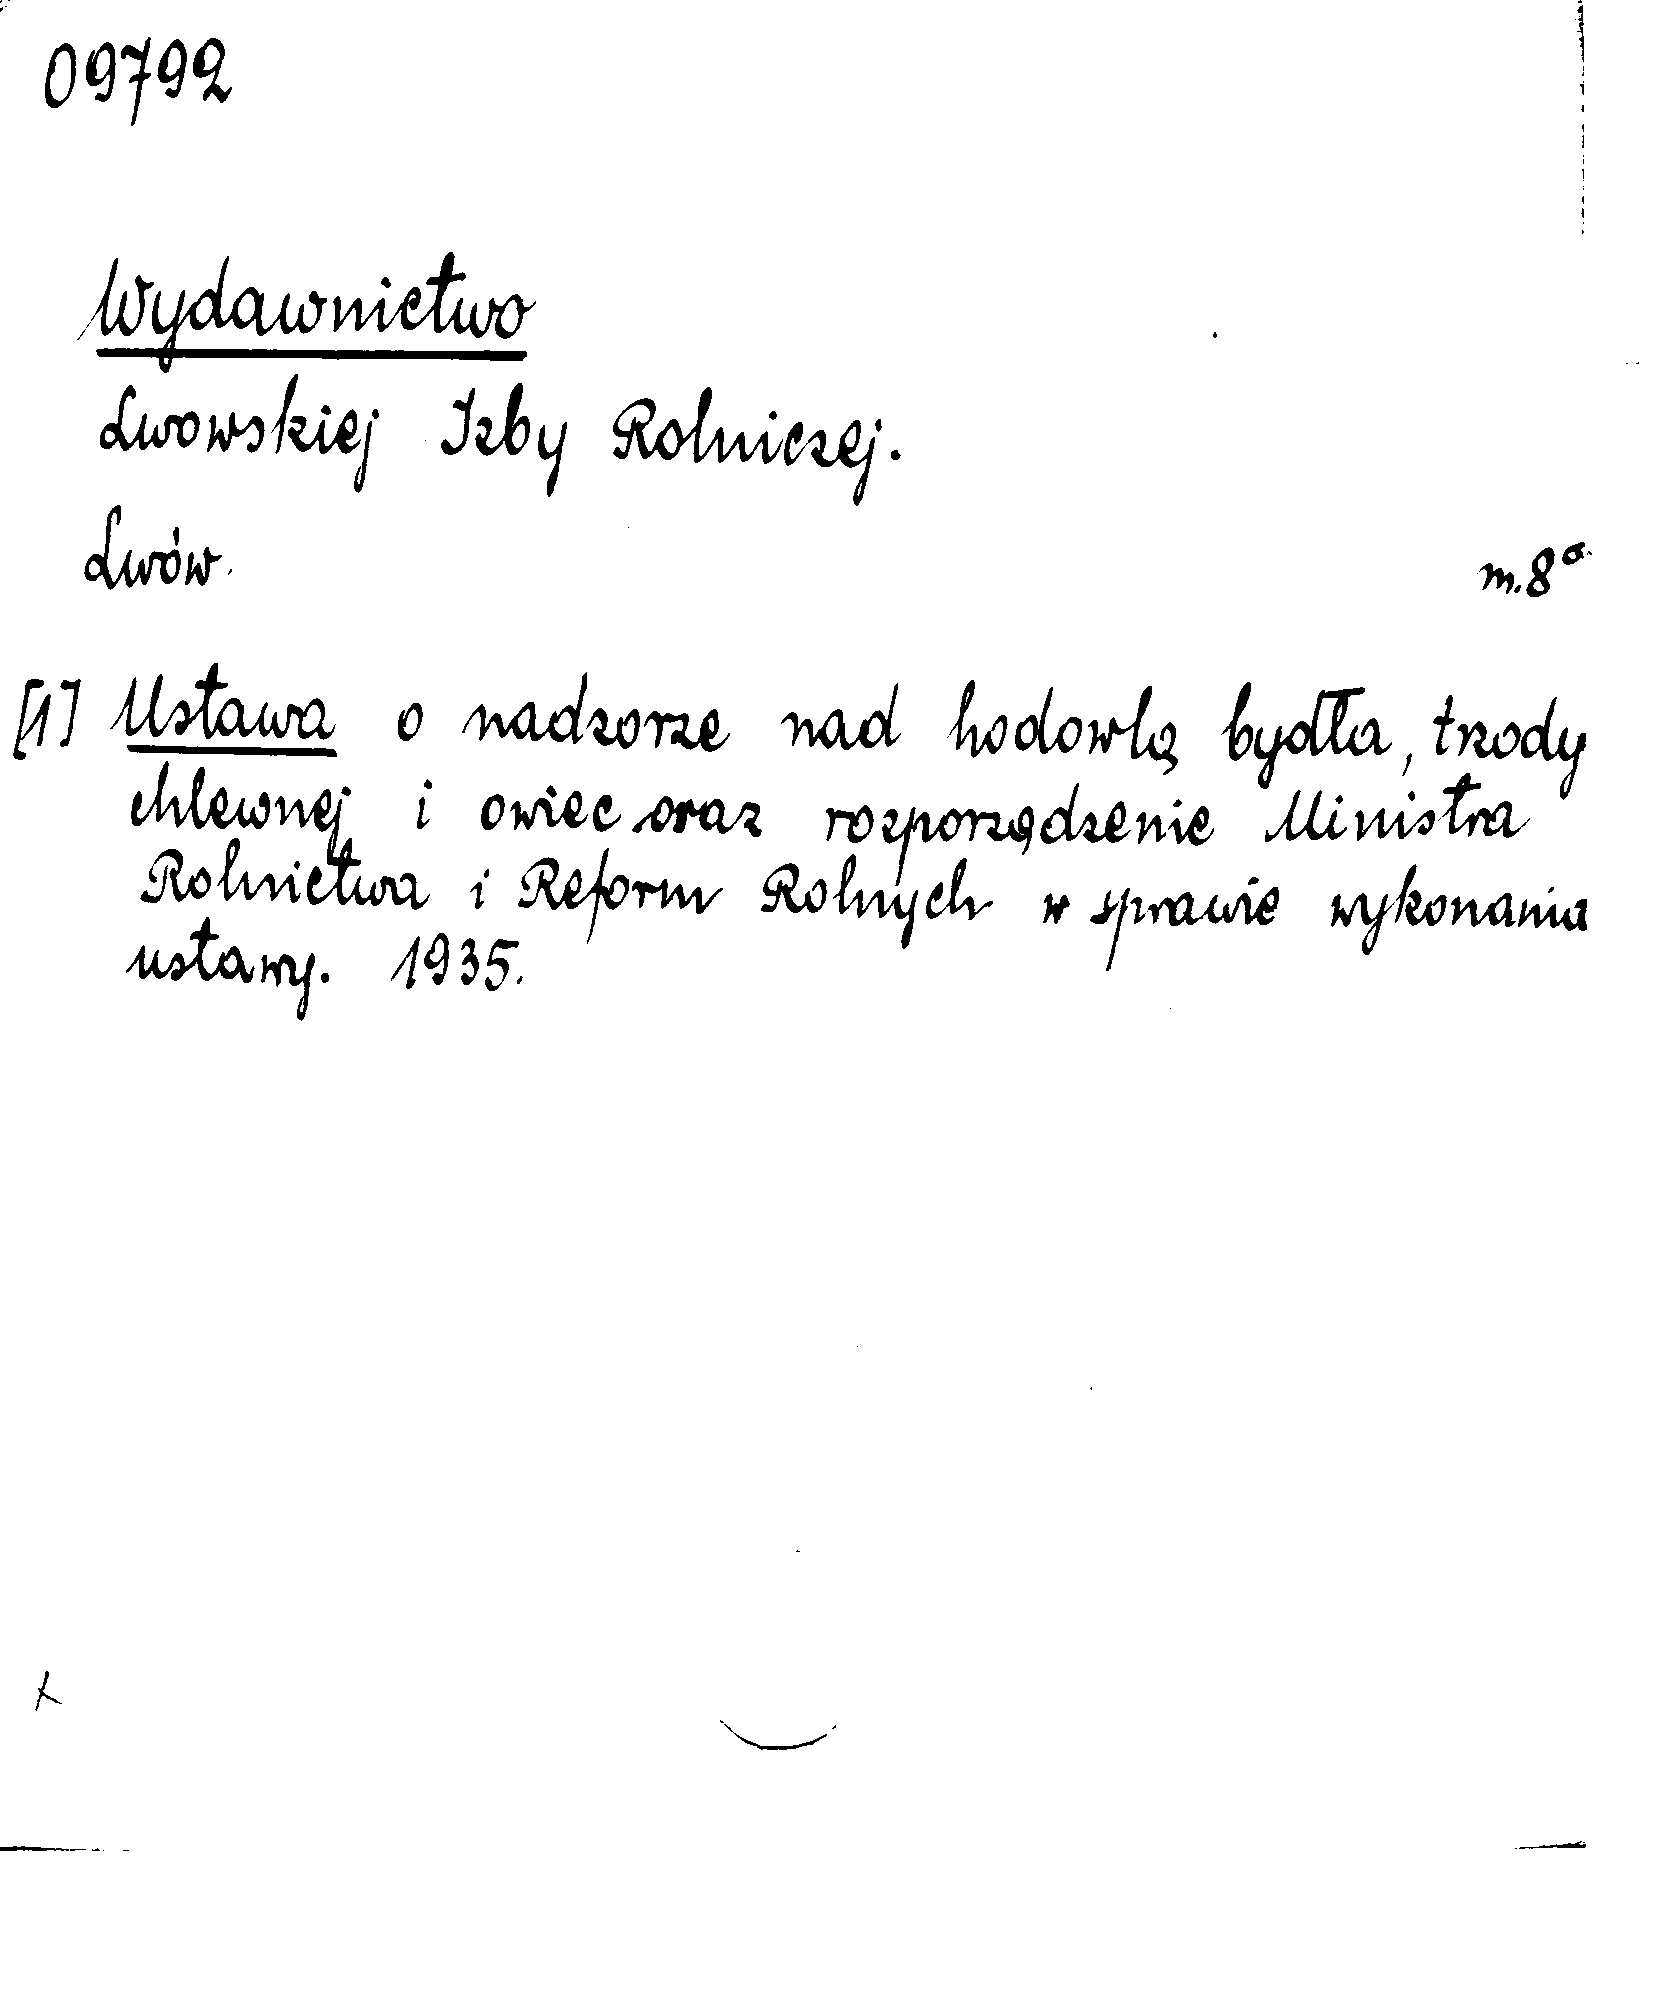 09792
Wydawnictwo
Lwowskiej Izby Rolniczej.
Lwów. m. 8°
[1] Ustawa o nadzorze nad hodowlą bydła, trzody
chlewnej i owiec oraz rozporządzenie Ministra
Rolnictwa i Reform Rolnych w sprawie wykonania
ustawy. 1935.